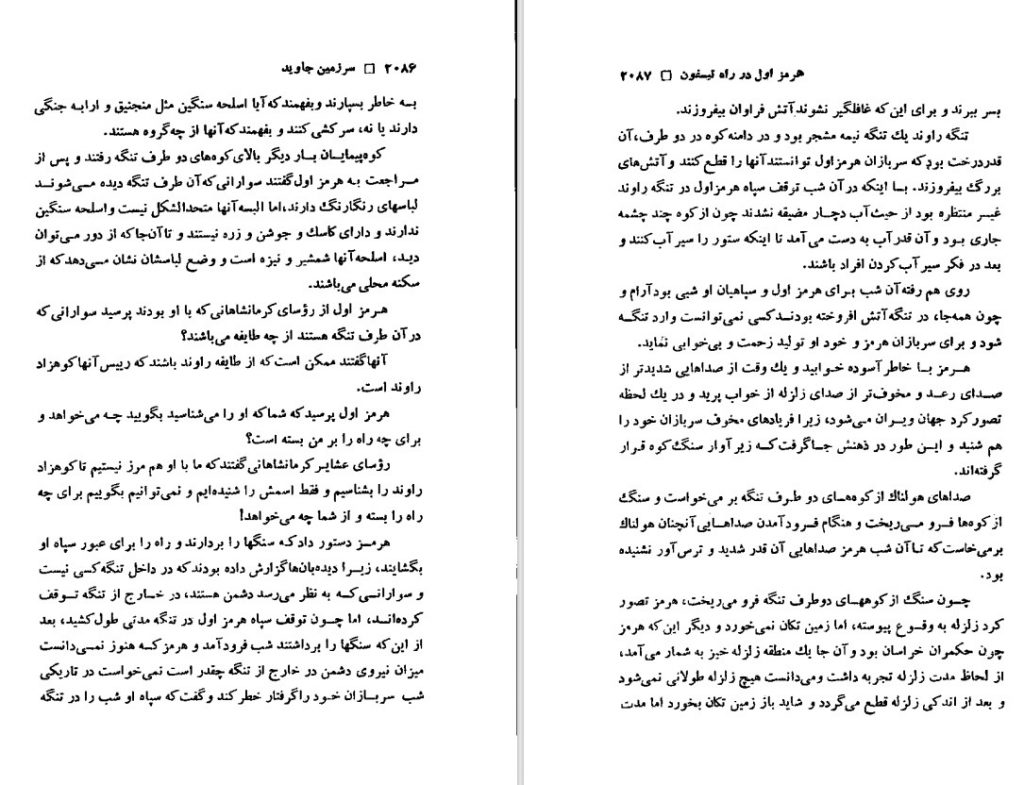 ۲۰۸۶ □ سرزمین جاوید
به خاطر بسپارند وبفهمند که آیا اسلحه سنگین مثل منجنیق و ارابه جنگی
دارند یا نه، سرکشی کنند و بفهمند که آنها از چه گروه هستند.
کوه‌پیمایان بار دیگر بالای کوه‌های دو طرف تنگه رفتند و پس از
مراجعت به هرمز اول گفتند سوارانی که آن طرف تنگه دیده می‌شوند
لباسهای رنگارنگ دارند، اما البسه آنها متحدالشکل نیست واسلحه سنگین
ندارند و دارای کاسک و جوشن و زره نیستند و تا آن‌جا که از دور می‌توان
دید، اسلحه آنها شمشیر و نیزه است و وضع لباسشان نشان می‌دهد که از
سکنه محلی می‌باشند.
هرمز اول از رؤسای کرمانشاهانی که با او بودند پرسید سوارانی که
در آن طرف تنگه هستند از چه طایفه می‌باشند؟
آنها گفتند ممکن است که از طایفه راوند باشند که رییس آنها کوهزاد
راوند است.
هرمز اول پرسید که شما که او را می‌شناسید بگویید چه می‌خواهد و
برای چه راه را بر من بسته است؟
رؤسای عشایر کرمانشاهانی گفتند که ما با او هم مرز نیستیم تا کوهزاد
راوند را بشناسیم و فقط اسمش را شنیده‌ایم و نمی‌توانیم بگوییم برای چه
راه را بسته و از شما چه می‌خواهد!
هرمز دستور داد که سنگها را بردارند و راه را برای عبور سپاه او
بگشایند، زیرا دیده‌بان‌ها گزارش داده بودند که در داخل تنگه کسی نیست
و سوارانی که به نظر می‌رسد دشمن هستند، در خارج از تنگه توقف
کرده‌اند، اما چون توقف سپاه هرمز اول در تنگه مدتی طول کشید، بعد
از این که سنگها را برداشتند شب فرود آمد و هرمز که هنوز نمی‌دانست
میزان نیروی دشمن در خارج از تنگه چقدر است نمی‌خواست در تاریکی
شب سربازان خود را گرفتار خطر کند و گفت که سپاه او شب را در تنگه
هرمز اول در راه تیسفون □ ۲۰۸۷
بسر ببرند و برای این که غافلگیر نشوند آتش فراوان بیفروزند.
تنگه راوند یك تنگه نیمه مشجر بود و در دامنه کوه در دو طرف، آن
قدر درخت بود که سربازان هرمز اول توانستند آنها را قطع کنند و آتش‌های
بزرگ بیفروزند. با اینکه در آن شب توقف سپاه هرمز اول در تنگه راوند
غیر منتظره بود از حیث آب دچار مضیقه نشدند چون از کوه چند چشمه
جاری بود و آن قدر آب به دست می‌آمد تا اینکه ستور را سیر آب کنند و
بعد در فکر سیر آب کردن افراد باشند.
روی هم رفته آن شب برای هرمز اول و سپاهیان او شبی بود آرام و
چون همه‌جا، در تنگه آتش افروخته بودند کسی نمی‌توانست وارد تنگه
شود و برای سربازان هرمز و خود او تولید زحمت و بی‌خوابی نماید.
هرمز با خاطر آسوده خوابید و یك وقت از صداهایی شدیدتر از
صدای رعد و مخوف‌تر از صدای زلزله از خواب پرید و در یك لحظه
تصور کرد جهان ویران می‌شود، زیرا فریادهای مخوف سربازان خود را
هم شنید و این طور در ذهنش جا گرفت که زیر آوار سنگ کوه قرار
گرفته‌اند.
صداهای هولناك از کوه‌های دو طرف تنگه بر می‌خواست و سنگ
از کوه‌ها فرو می‌ریخت و هنگام فرود آمدن صداهایی آنچنان هولناك
برمی‌خاست که تا آن شب هرمز صداهایی آن قدر شدید و ترس‌آور نشنیده
بود.
چون سنگ از کوههای دو طرف تنگه فرو می‌ریخت، هرمز تصور
کرد زلزله به وقوع پیوسته، اما زمین تکان نمی‌خورد و دیگر این که هرمز
چون حکمران خراسان بود و آن جا یك منطقه زلزله خیز به شمار می‌آمد،
از لحاظ مدت زلزله تجربه داشت و می‌دانست هیچ زلزله طولانی نمی‌شود
و بعد از اندکی زلزله قطع می‌گردد و شاید باز زمین تکان بخورد اما مدت